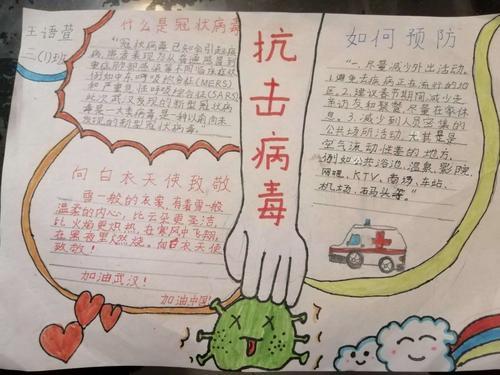 王语萱
二(1)班
什么是冠状病毒
"冠状病毒已知会引起疾
病,患者表现为从普通感冒到
重症肺部感染等不同临床症状,
例如中东呼吸综合征(MERS)
和严重急性呼吸综合征(SARS).
此次武汉发现的新型冠状病
毒是一大类病毒,是一种以前尚未
发现的新型冠状病毒."
向白衣天使致敬
雪一般的衣裳,有着雪一般
温柔的内心,比云朵更圣洁,
比火焰更炽热,在寒风中飞翔,
在黑夜里燃烧。向白衣天使
致敬!
加油武汉!
加油中国!
抗击病毒
如何预防
"一、尽量减少外出活动。
1.避免去疾病正在流行的地
区。2.建议春节期间减少走
亲访友和聚餐,尽量在家休
息。3.减少到人员密集的
公共场所活动,尤其是
空气流动性差的地方,
例如公共浴池、温泉、影院、
网吧、KTV、商场、车站、
机场、码头等。"